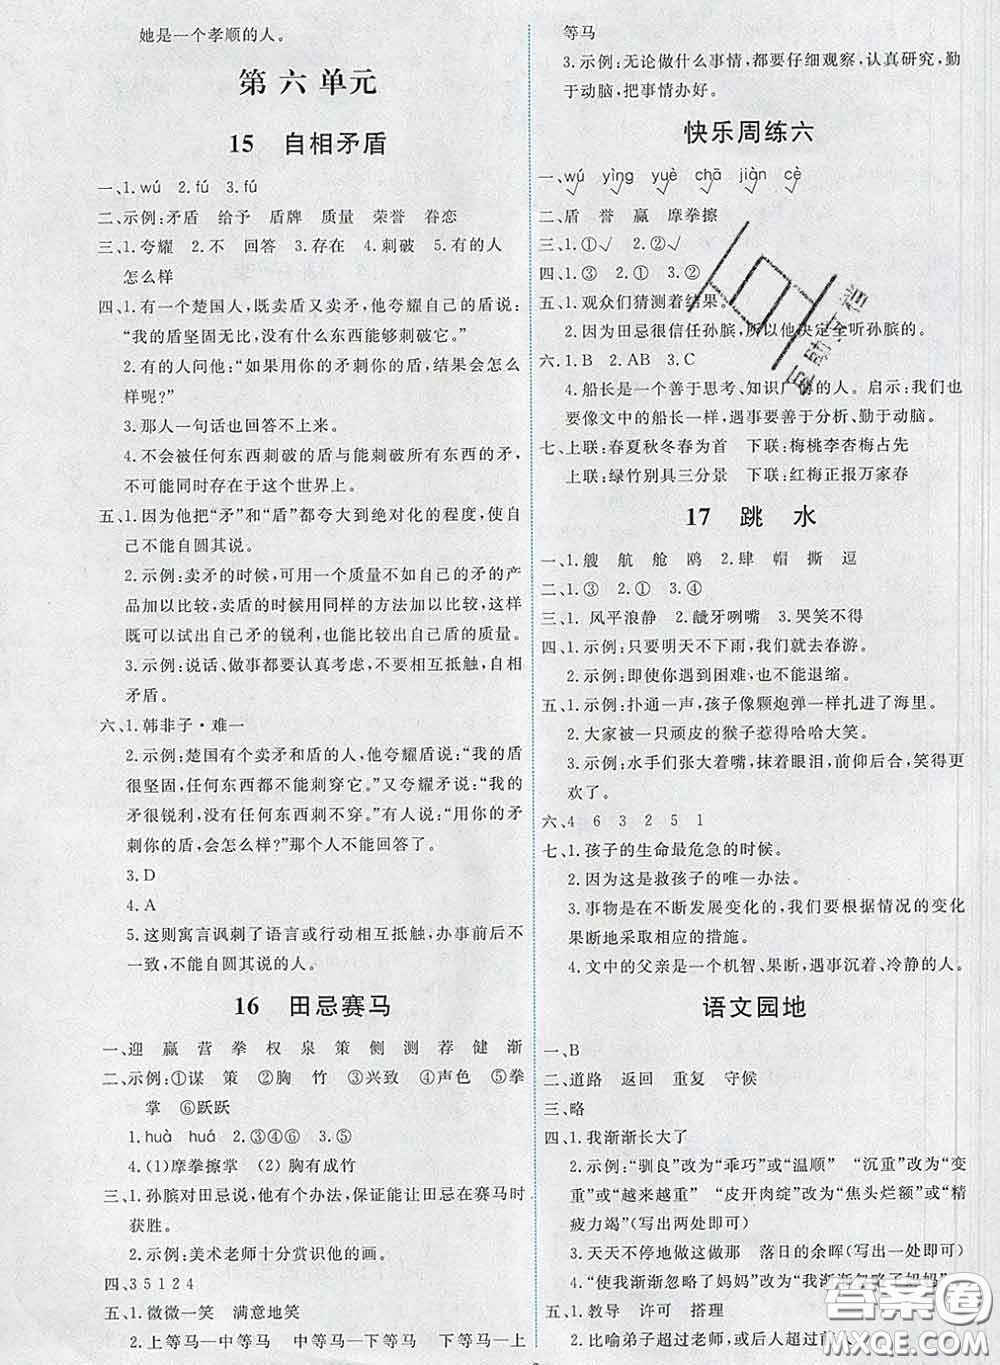 她是一个孝顺的人。
第六单元
15 自相矛盾
一、1.wú 2.fú 3.fú
二、示例:矛盾 给予 盾牌 质量 荣誉 眷恋
三、1.夸耀 2.不 回答 3.存在 4.刺破 5.有的人
怎么样
四、1.有一个楚国人,既卖盾又卖矛,他夸耀自己的盾说:
“我的盾坚固无比,没有什么东西能够刺破它。”
2.有的人问他:“如果用你的矛刺你的盾,会怎么
样呢?”
3.那人一句话也回答不上来。
4.不会被任何东西刺破的盾与能刺破所有东西的矛,
不可能同时存在于这个世界上。
五、1.因为他把“矛”和“盾”都夸大到绝对化的程度,使自
己不能自圆其说。
2.示例:卖矛的时候,可用一个质量不如自己的矛的产
品加以比较,卖盾的时候用同样的方法加以比较,这样
既可以试出自己矛的锐利,也能比较出自己盾的质量。
3.示例:说话、做事都要认真考虑,不要相互抵触,自相
矛盾。
六、1.韩非子·难一
2.示例:楚国有个卖矛和盾的人,他夸耀盾说:“我的盾
很坚固,任何东西都不能刺穿它。”又夸耀矛说:“我的
矛很锐利,没有任何东西刺不穿。”有人说:“用你的矛
刺你的盾,会怎么样?”那个人不能回答了。
3.D
4.A
5.这则寓言讽刺了语言或行动相互抵触,办事前后不
一致,不能自圆其说的人。
16 田忌赛马
一、迎 赢 营 拳 权 泉 策 侧 测 荐 健 渐
二、示例:①谋 策 ②胸 竹 ③兴致 ④声色 ⑤拳
掌 ⑥跃跃
1.huà huá 2.③④⑥ 3.⑤
4.(1)摩拳擦掌 (2)胸有成竹
三、1.孙膑对田忌说,他有个办法,保证能让田忌在赛马时
获胜。
2.示例:美术老师十分赏识他的画。
四、3 5 1 2 4
五、1.微微一笑 满意地笑
2.上等马—中等马 中等马—下等马 下等马—上
等马
3.示例:无论做什么事情,都要仔细观察,认真研究,勤
于动脑,把事情办好。
快乐周练六
一、wú yìng yuè chā jiàn cè
二、盾 誉 赢 摩拳擦
三、1.①√ 2.②√
四、1.③ 2.① 3.②
五、1.观众们猜测着结果。
2.因为田忌很信任孙膑,所以他决定全听孙膑的。
六、1.B 2.AB 3.C
4.船长是一个善于思考、知识广博的人。启示:我们也
要像文中的船长一样,遇事要善于分析、勤于动脑。
七、上联:春夏秋冬春为首 下联:梅桃李杏梅占先
上联:绿竹别具三分景 下联:红梅正报万家春
17 跳水
一、1.艘 航 舱 鸥 2.肆 帽 撕 逗
二、1.③ 2.① 3.④
三、1.风平浪静 2.龇牙咧嘴 3.哭笑不得
四、1.示例:只要明天不下雨,我们就去春游。
2.示例:即使你遇到困难,也不能退缩。
五、1.示例:扑通一声,孩子像颗炮弹一样扎进了海里。
2.大家被一只顽皮的猴子惹得哈哈大笑。
3.示例:水手们张大着嘴,抹着眼泪,前仰后合,笑得更
欢了。
六、4 6 3 2 5 1
七、1.孩子的生命最危急的时候。
2.因为这是救孩子的唯一办法。
3.事物是在不断发展变化的,我们要根据情况的变化
果断地采取相应的措施。
4.文中的父亲是一个机智、果断,遇事沉着、冷静的人。
语文园地
一、B
二、道路 返回 重复 守候
三、略
四、1.我渐渐长大了
2.示例:“驯良”改为“乖巧”或“温顺” “沉重”改为“变
重”或“越来越重” “皮开肉绽”改为“焦头烂额”或“精
疲力竭”(写出两处即可)
3.天天不停地做这做那 落日的余晖(写出一处即可)
4.“使我渐渐忽略了妈妈”改为“我渐渐忽略了妈妈”
五、1.教导 许可 搭理
2.比喻弟子超过老师,或后人超过前
答案圈
MXQE.COM